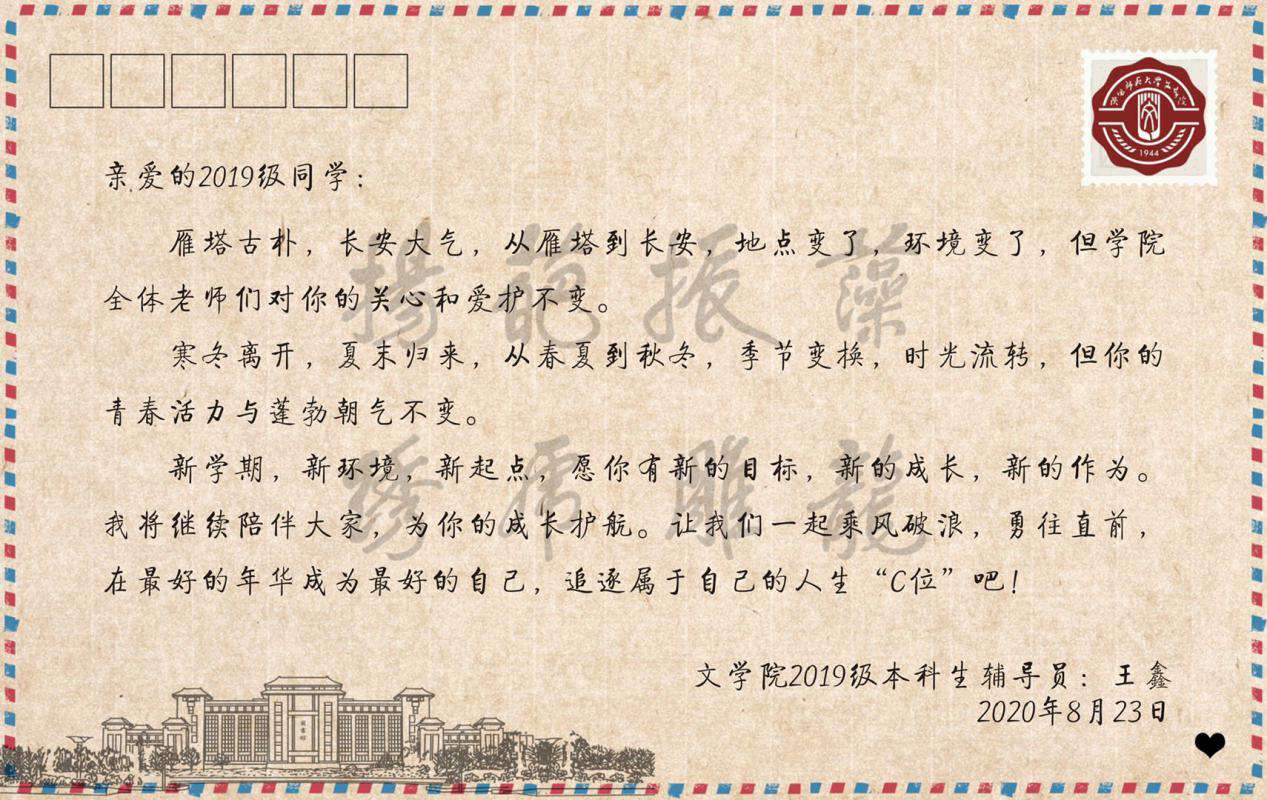 陕西师范大学文学院
1944
亲爱的2019级同学：
雁塔古朴，长安大气，从雁塔到长安，地点变了，环境变了，但学院
全体老师们对你的关心和爱护不变。
寒冬离开，夏末归来，从春夏到秋冬，季节变换，时光流转，但你的
青春活力与蓬勃朝气不变。
新学期，新环境，新起点，愿你有新的目标，新的成长，新的作为。
我将继续陪伴大家，为你的成长护航。让我们一起乘风破浪，勇往直前，
在最好的年华成为最好的自己，追逐属于自己的人生“C位”吧！
揚葩振藻
繡虎雕龍
文学院2019级本科生辅导员：王鑫
2020年8月23日